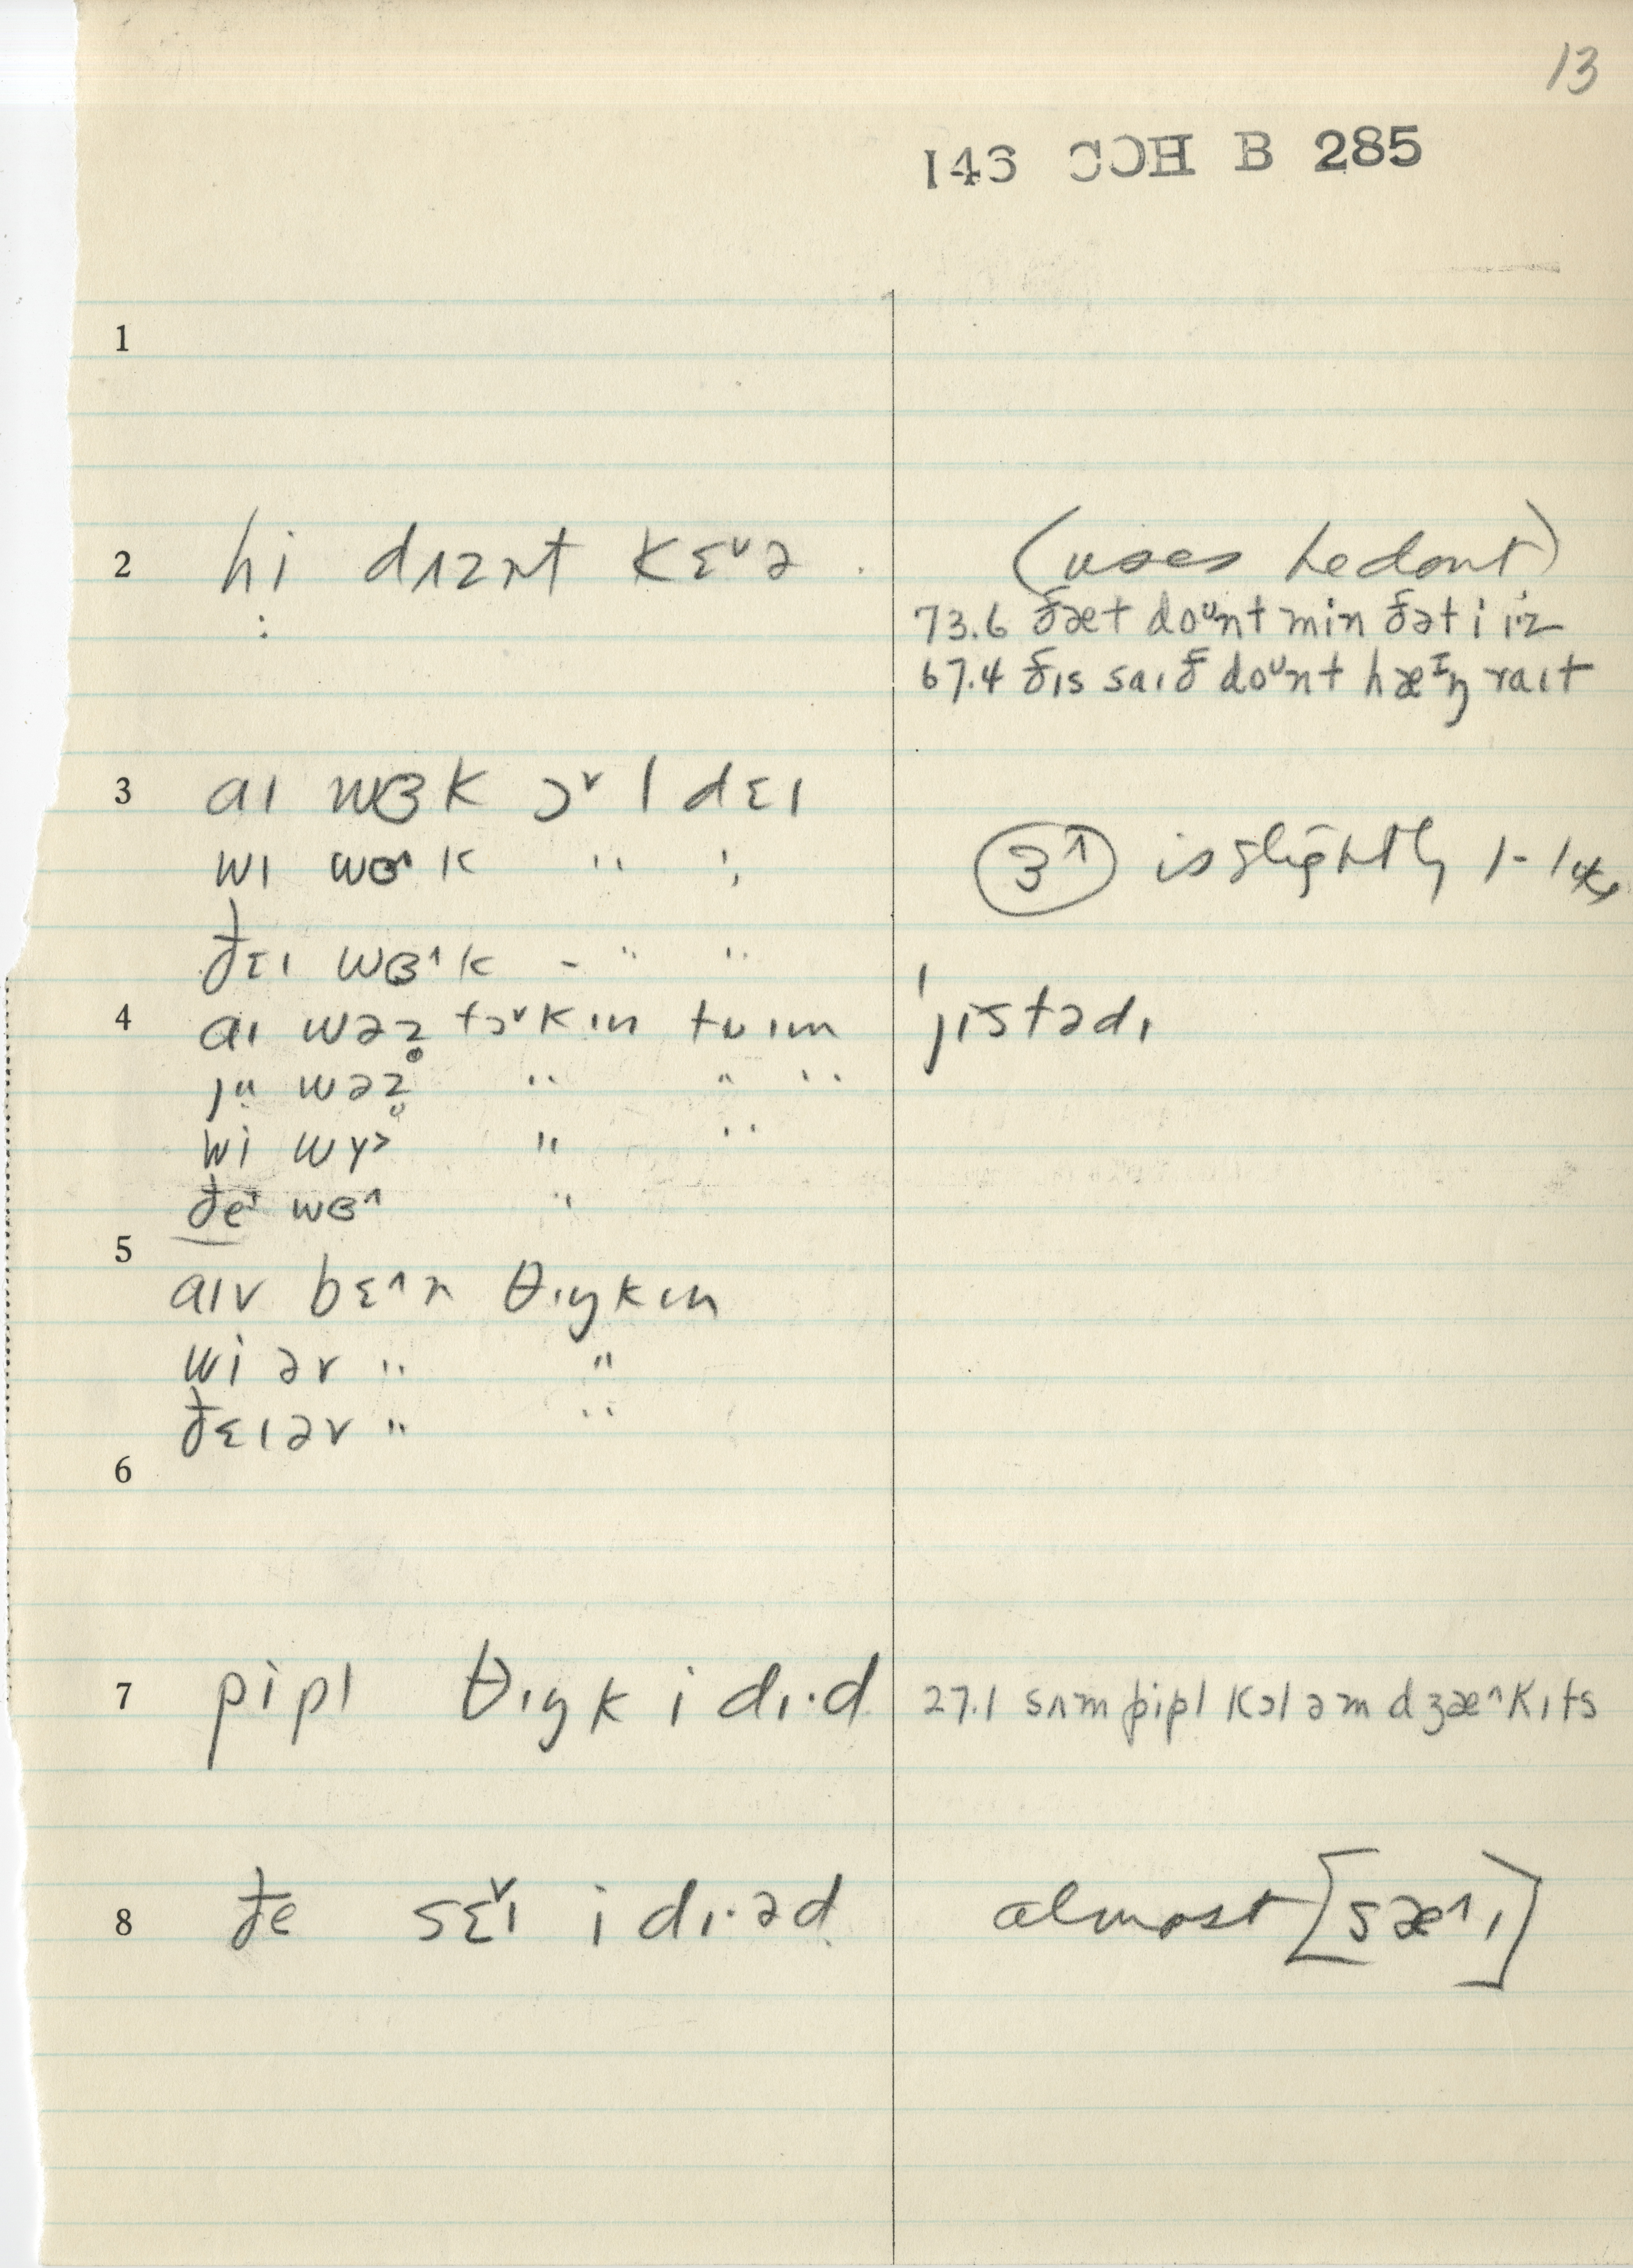 13
143 CCH B 285
1
2 hi dɪznt kɛᵛə (uses he dont)
73.6 ðæt doᵘnt min ðət i iˑz
67.4 ðɪs saɪð doᵘnt hæᶦŋ raɪt
3 aɪ wɜk ɔᵛl dɛɪ
wɪ wɜ^k " "
ɜ^ is slightly
ðɛɪ wɜ^k " "
4 aɪ wəz̥ tɔᵛkɪn tʊ ɪm ˈjɪstədɪ
ju wəz̥ " " "
wi wɤ> " "
ðeɪ wɜ^ "
5
aɪv bɛ^n θɪŋkɪn
wi əv " "
ðɛɪ əv " "
6
7 pipl θɪŋk i dɪˑd 27.1 sʌm pipl kɔl əm dʒæ^kɪts
8 ðe sɛᵛɪ i dɪˑəd almost [sæ^ɪ]